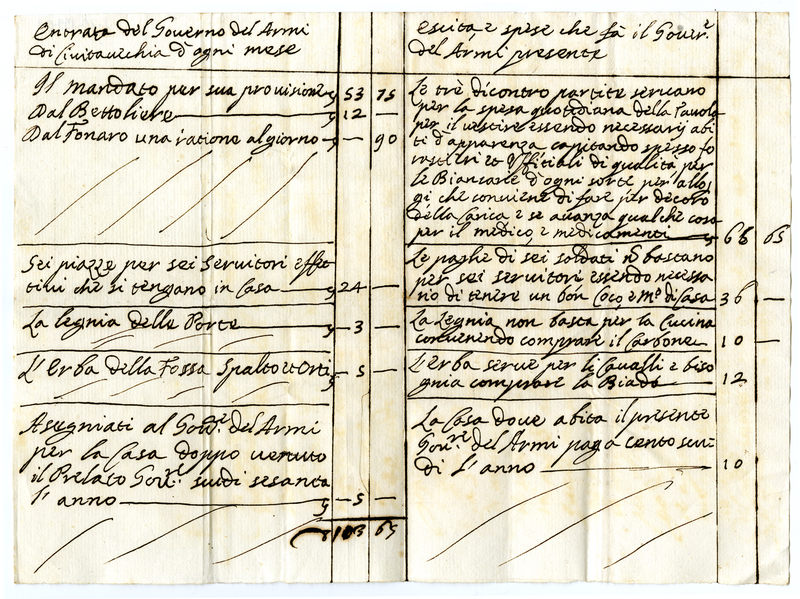 Entrata del Governo del Armi
di Civitavechia d'ogni mese
Il mandato per sua provisione 53 75
Dal Bettoliere 12 —
Dal Fonaro una ratione al giorno — 90
Sei piazze per sei Servitori effet
tivi che si tengano in Casa 24 —
La legnia delle Porte 3 —
L'Erba della Fossa Spalto et Orti 5 —
Asegniati al Gov.re del Armi
per la Casa doppo venuto
il Prelato Gov.re scudi sesanta
l'anno 5 —
103 65
Escita e spese che fà il Gover.re
del Armi presente
Le trè dicontro partite servano
per la spesa quotidiana della Tavola
per il vestire essendo necessarij abi
ti d'apparenza capitando spesso fo
rastieri et Offitiali di qualità per
le Biancarie d'ogni sorte per allog
gi che conviene di fare per decoro
della Carica e se avanza qualche cosa
per il medico, e medicamenti 66 65
Le paghe di sei soldati nō bastano
per sei servitori essendo necessa
rio di tenere un bon Coco e m.º di Casa 36 —
La Legnia non basta per la Cucina
convenendo comprare il Carbone 10 —
L'erba serve per li Cavalli e biso
gnia comprare la Biada 12
La Casa dove abita il presente
Gov.re del Armi paga cento scu=
di l'anno 10